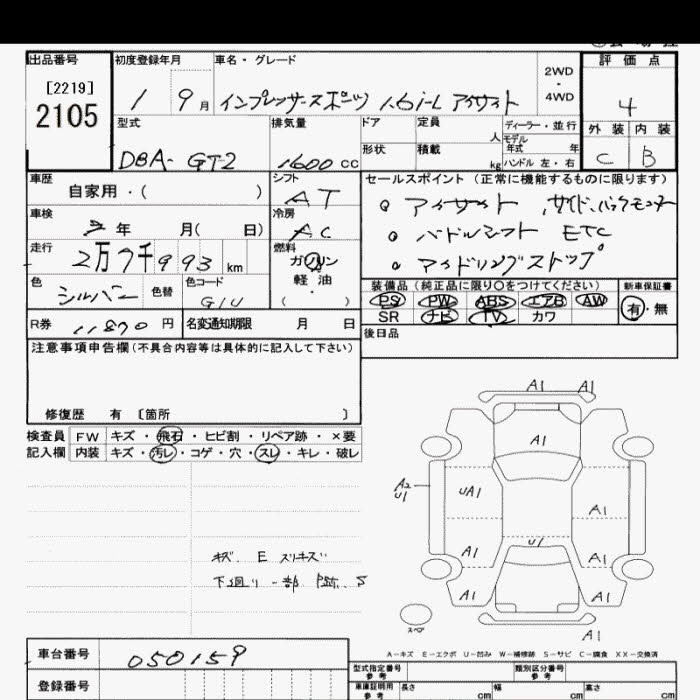 出品番号
[2219]
2105
初度登録年月
1 9月
車名・グレード
インプレッサスポーツ 1.6i-L アイサイト
2WD
・
4WD
評価点
4
外装 内装
C B
型式
DBA- GT2
排気量
1600cc
ドア
形状
定員
人
積載
kg
ディーラー・並行
モデル
年式 年
ハンドル 左・右
車歴
自家用・( )
シフト
AT
車検
年 月( 日)
冷房
AC
走行
2万7千993km
燃料
ガソリン
軽油
( ・ )
色
シルバー
色替
色コード
G1U
R券 11870円
名変通知期限 月 日
セールスポイント(正常に機能するものに限ります)
アイサイト サイド、バックモニター
パドルシフト ETC
アイドリングストップ
装備品(純正品に限り○をつけてください)
PS PW ABS エアB AW
SR ナビ TV カワ
新車保証書
有・無
後日品
注意事項申告欄(不具合内容等は具体的に記入して下さい)
修復歴 有 〔箇所 〕
検査員
記入欄
FW キズ・飛石・ヒビ割・リペア跡・×要
内装 キズ・汚レ・コゲ・穴・スレ・キレ・破レ
キズ、E スリキズ
下廻り一部 跡、S
A1 A1
A1
A2
U1
UA1
A1
U1
A1 A1
A1 A1
A1
スペア
A-キズ E-エクボ U-凹み W-補修跡 S-サビ C-腐食 XX-交換済
車台番号 050159
登録番号
型式指定番号
参考
類別区分番号
参考
車庫証明用
参考
長さ cm 幅 cm 高さ cm